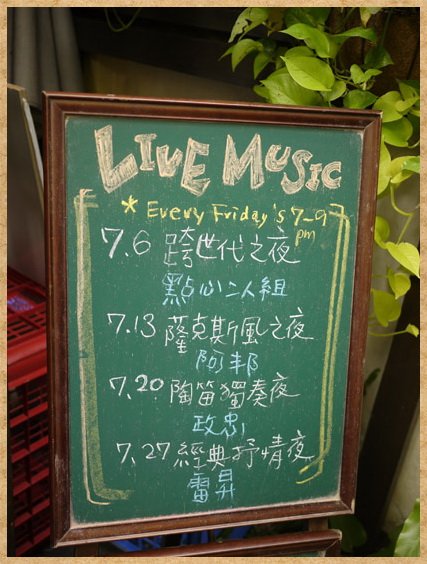 LIVE MUSIC
* Every Friday's 7-9 pm
7.6 跨世代之夜
點心二人組
7.13 薩克斯風之夜
阿邦
7.20 陶笛獨奏夜
政忠
7.27 經典抒情夜
雷昇